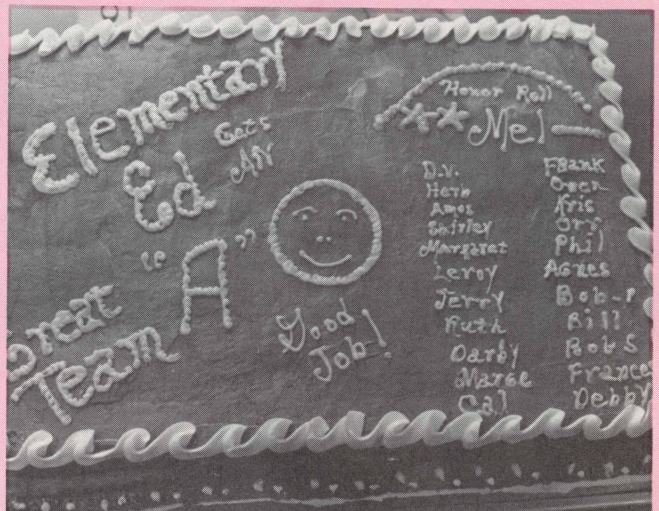 Elementary
Ed
Gets
AN
"A"
Great
Team
Good
Job!
Honor Roll
**Mel
D.V.
Herb
Amos
Shirley
Margaret
Leroy
Jerry
Ruth
Darby
Marge
Cal
Frank
Owen
Kris
Orv
Phil
Agnes
Bob-P
Bill
Bob S
Frances
Debby